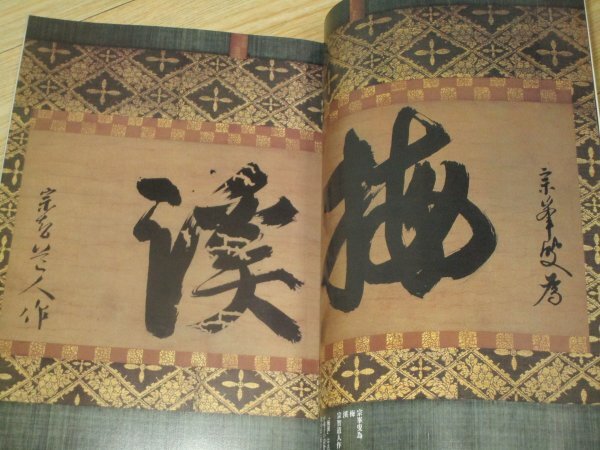 宗峯叟為
梅
溪
宗智道人作
宗峯叟為
梅
溪
宗智道人作